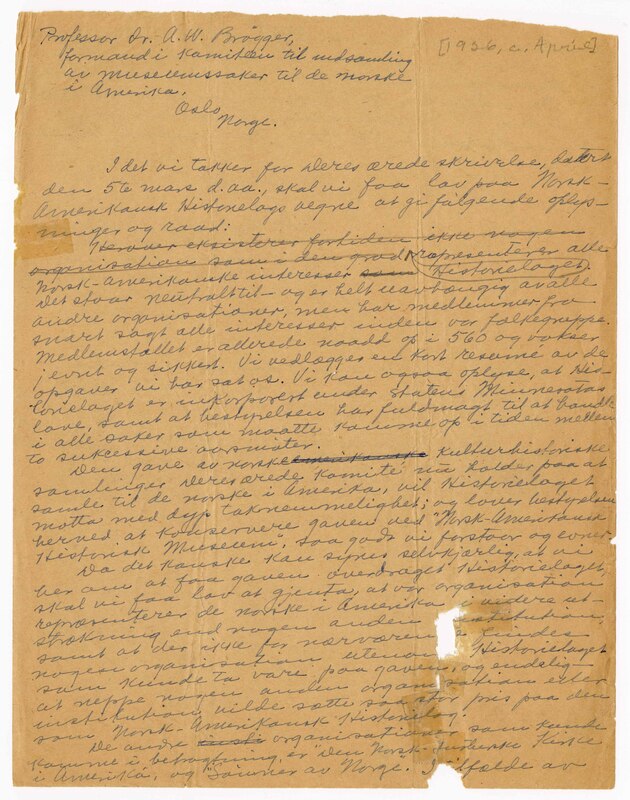 Professor Dr. A. W. Brøgger,
formand i komiteen til indsamling
av museumssaker til de norske
i Amerika,
Oslo,
Norge.
[1926, c. April]
I det vi takker for Deres ærede skrivelse, datert
den 5te mars d. aa., skal vi faa lov paa Norsk-
Amerikansk Historielags vegne at gi følgende oplys-
ninger og raad:
Herover eksisterer fortiden ikke nogen
organisation som i den grad representerer alle
Norsk-Amerikanske interesser som Historielaget.
Det staar neutralt til - og er helt uavhængig av alle
andre organisationer, men har medlemmer fra
snart sagt alle interesser inden vor folkegruppe.
Medlemstallet er allerede naadd op i 560 og vokser
jevnt og sikkert. Vi vedlægger en kort resume av de
opgaver vi har sat os. Vi kan ogsaa oplyse, at His-
torielaget er inkorporert under staten Minnesotas
love, samt at bestyrelsen har fuldmagt til at handle
i alle saker som maatte komme op i tiden mellem
to sukcessive aarsmøter.
Den gave av norske amerikanske kulturhistoriske
samlinger Deres ærede komite nu holder paa at
samle til de norske i Amerika, vil Historielaget
motta med dyp taknemmelighet; og lover bestyrelsen
herved at konservere gaven ved "Norsk-Amerikansk
Historisk Museum", saa godt vi forstaar og evner.
Da det kanske kan synes selvkjærlig, at vi
ber om at faa gaven overdraget Historielaget,
skal vi faa lov at gjenta, at vor organisation
repræsenterer de norske i Amerika i videre ut-
strækning end nogen anden institution,
samt at der ikke for nærværende findes
nogen organisation utenom Historielaget
som kunde ta vare paa gaven, og endelig
at neppe nogen anden organisation eller
institution vilde sætte saa stor pris paa den
som Norsk-Amerikansk Historielag.
De andre organisationer som kunde
komme i betragtning, er "Den Norsk-Lutherske Kirke
i Amerika", og "Sønner av Norge". I tilfælde av